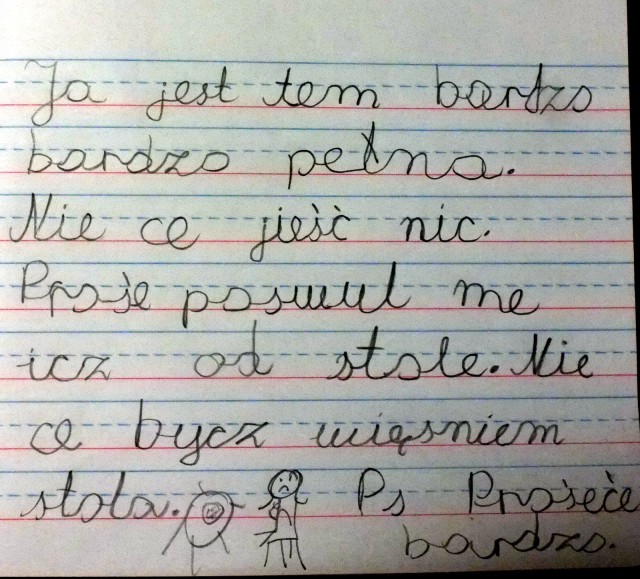 Ja jest tem bardzo
bardzo pełna.
Nie ce jieść nic.
Prosie poswul me
icz od stole. Nie
ce bycz więsniem
stola. Ps Prosieće
bardzo.